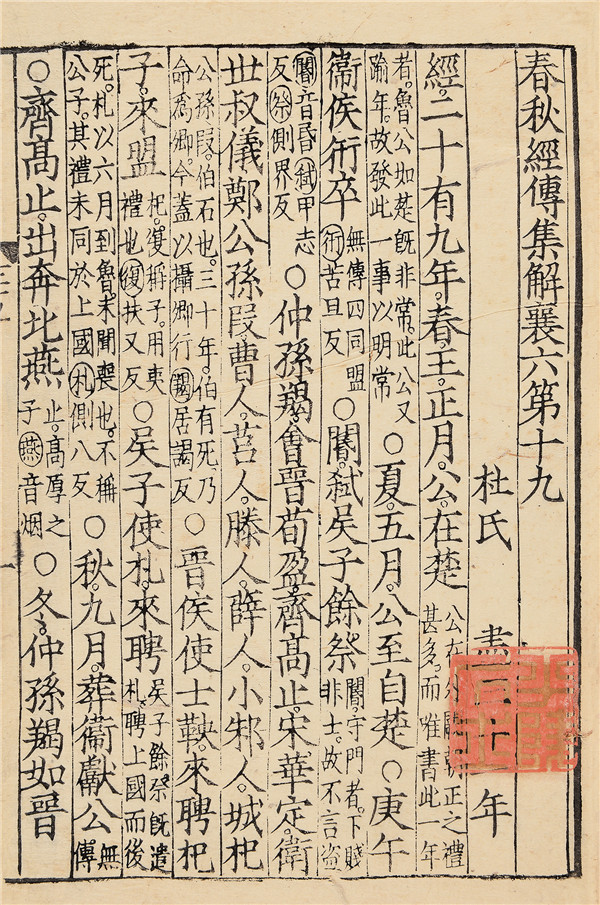 春秋經傳集解襄六第十九
杜氏 盡三十年
經。二十有九年。春。王正月。公在楚公在外闕朝正之禮甚多。而唯書此一年
者。魯公如楚既非常。此公又踰年。故發此一事以明常○夏。五月。公至自楚○庚午
衞侯衎卒無傳四同盟衎苦旦反○閽。弑吳子餘祭閽。守門者。下賤非士。故不言盜
閽音昏弑申志反祭側界反○仲孫羯。會晉荀盈。齊髙止。宋華定。衛
世叔儀鄭公孫叚。曹人。莒人。滕人。薛人。小邾人。城杞
公孫叚。伯石也。三十年。伯有死。乃命爲卿。今蓋以攝卿行羯居謁反○晉侯使士鞅。來聘杞
子。來盟杞。復稱子。用夷禮也復扶又反○吳子使札。來聘吳子餘祭既遣札。聘上國而後
死。札以六月到魯。未聞喪也。不稱公子。其禮未同於上國札側八反○秋。九月。葬衞獻公無傳
○齊髙止。出奔北燕止。髙厚之子燕音烟○冬。仲孫羯如晉